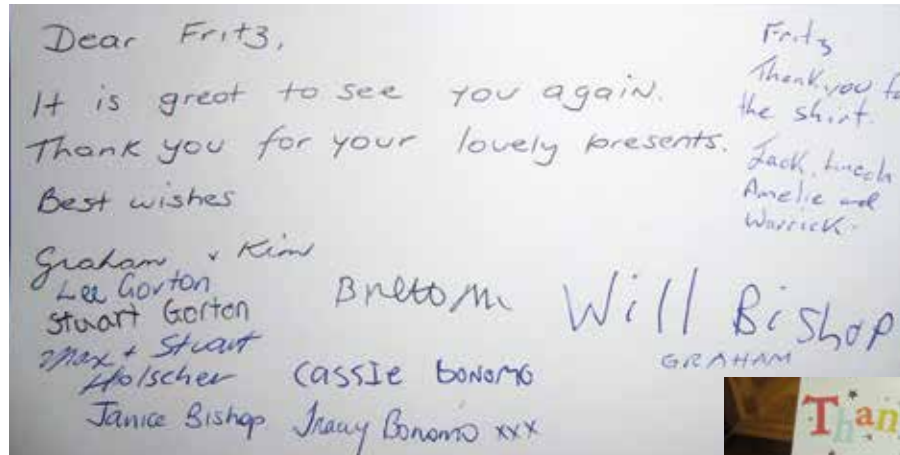 Dear Fritz,
It is great to see you again.
Thank you for your lovely presents.
Best wishes
Graham & Kim
Lee Gorton
Stuart Gorton
Max + Stuart
Holscher
Janice Bishop
Cassie Bonomo
Tracy Bonomo xxx
Will Bishop
GRAHAM
Fritz
Thank you fo
the shirt.
Jack,
Amelie and
Warrick.
Than